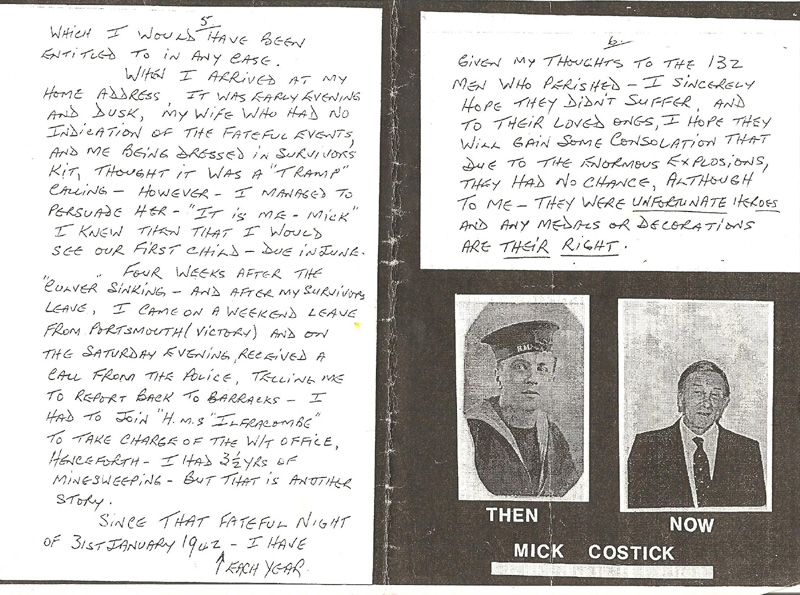 5.
WHICH I WOULD HAVE BEEN
ENTITLED TO IN ANY CASE.
WHEN I ARRIVED AT MY
HOME ADDRESS, IT WAS EARLY EVENING
AND DUSK, MY WIFE WHO HAD NO
INDICATION OF THE FATEFUL EVENTS,
AND ME BEING DRESSED IN SURVIVORS
KIT, THOUGHT IT WAS A "TRAMP"
CALLING - HOWEVER - I MANAGED TO
PERSUADE HER - "IT IS ME - MICK"
I KNEW THEN THAT I WOULD
SEE OUR FIRST CHILD - DUE IN JUNE.
FOUR WEEKS AFTER THE
"CULVER" SINKING - AND AFTER MY SURVIVORS
LEAVE, I CAME ON A WEEKEND LEAVE
FROM PORTSMOUTH (VICTORY) AND ON
THE SATURDAY EVENING, RECEIVED A
CALL FROM THE POLICE, TELLING ME
TO REPORT BACK TO BARRACKS - I
HAD TO JOIN "H.M.S "ILFRACOMBE"
TO TAKE CHARGE OF THE W/T OFFICE,
HENCEFORTH - I HAD 3½ YRS OF
MINESWEEPING - BUT THAT IS ANOTHER
STORY.
SINCE THAT FATEFUL NIGHT
OF 31ST JANUARY 1942 - I HAVE
↑ EACH YEAR
6.
GIVEN MY THOUGHTS TO THE 132
MEN WHO PERISHED - I SINCERELY
HOPE THEY DIDN'T SUFFER, AND
TO THEIR LOVED ONES, I HOPE THEY
WILL GAIN SOME CONSOLATION THAT
DUE TO THE ENORMOUS EXPLOSIONS,
THEY HAD NO CHANCE, ALTHOUGH
TO ME - THEY WERE UNFORTUNATE HEROES
AND ANY MEDALS OR DECORATIONS
ARE THEIR RIGHT.
THEN
NOW
MICK COSTICK